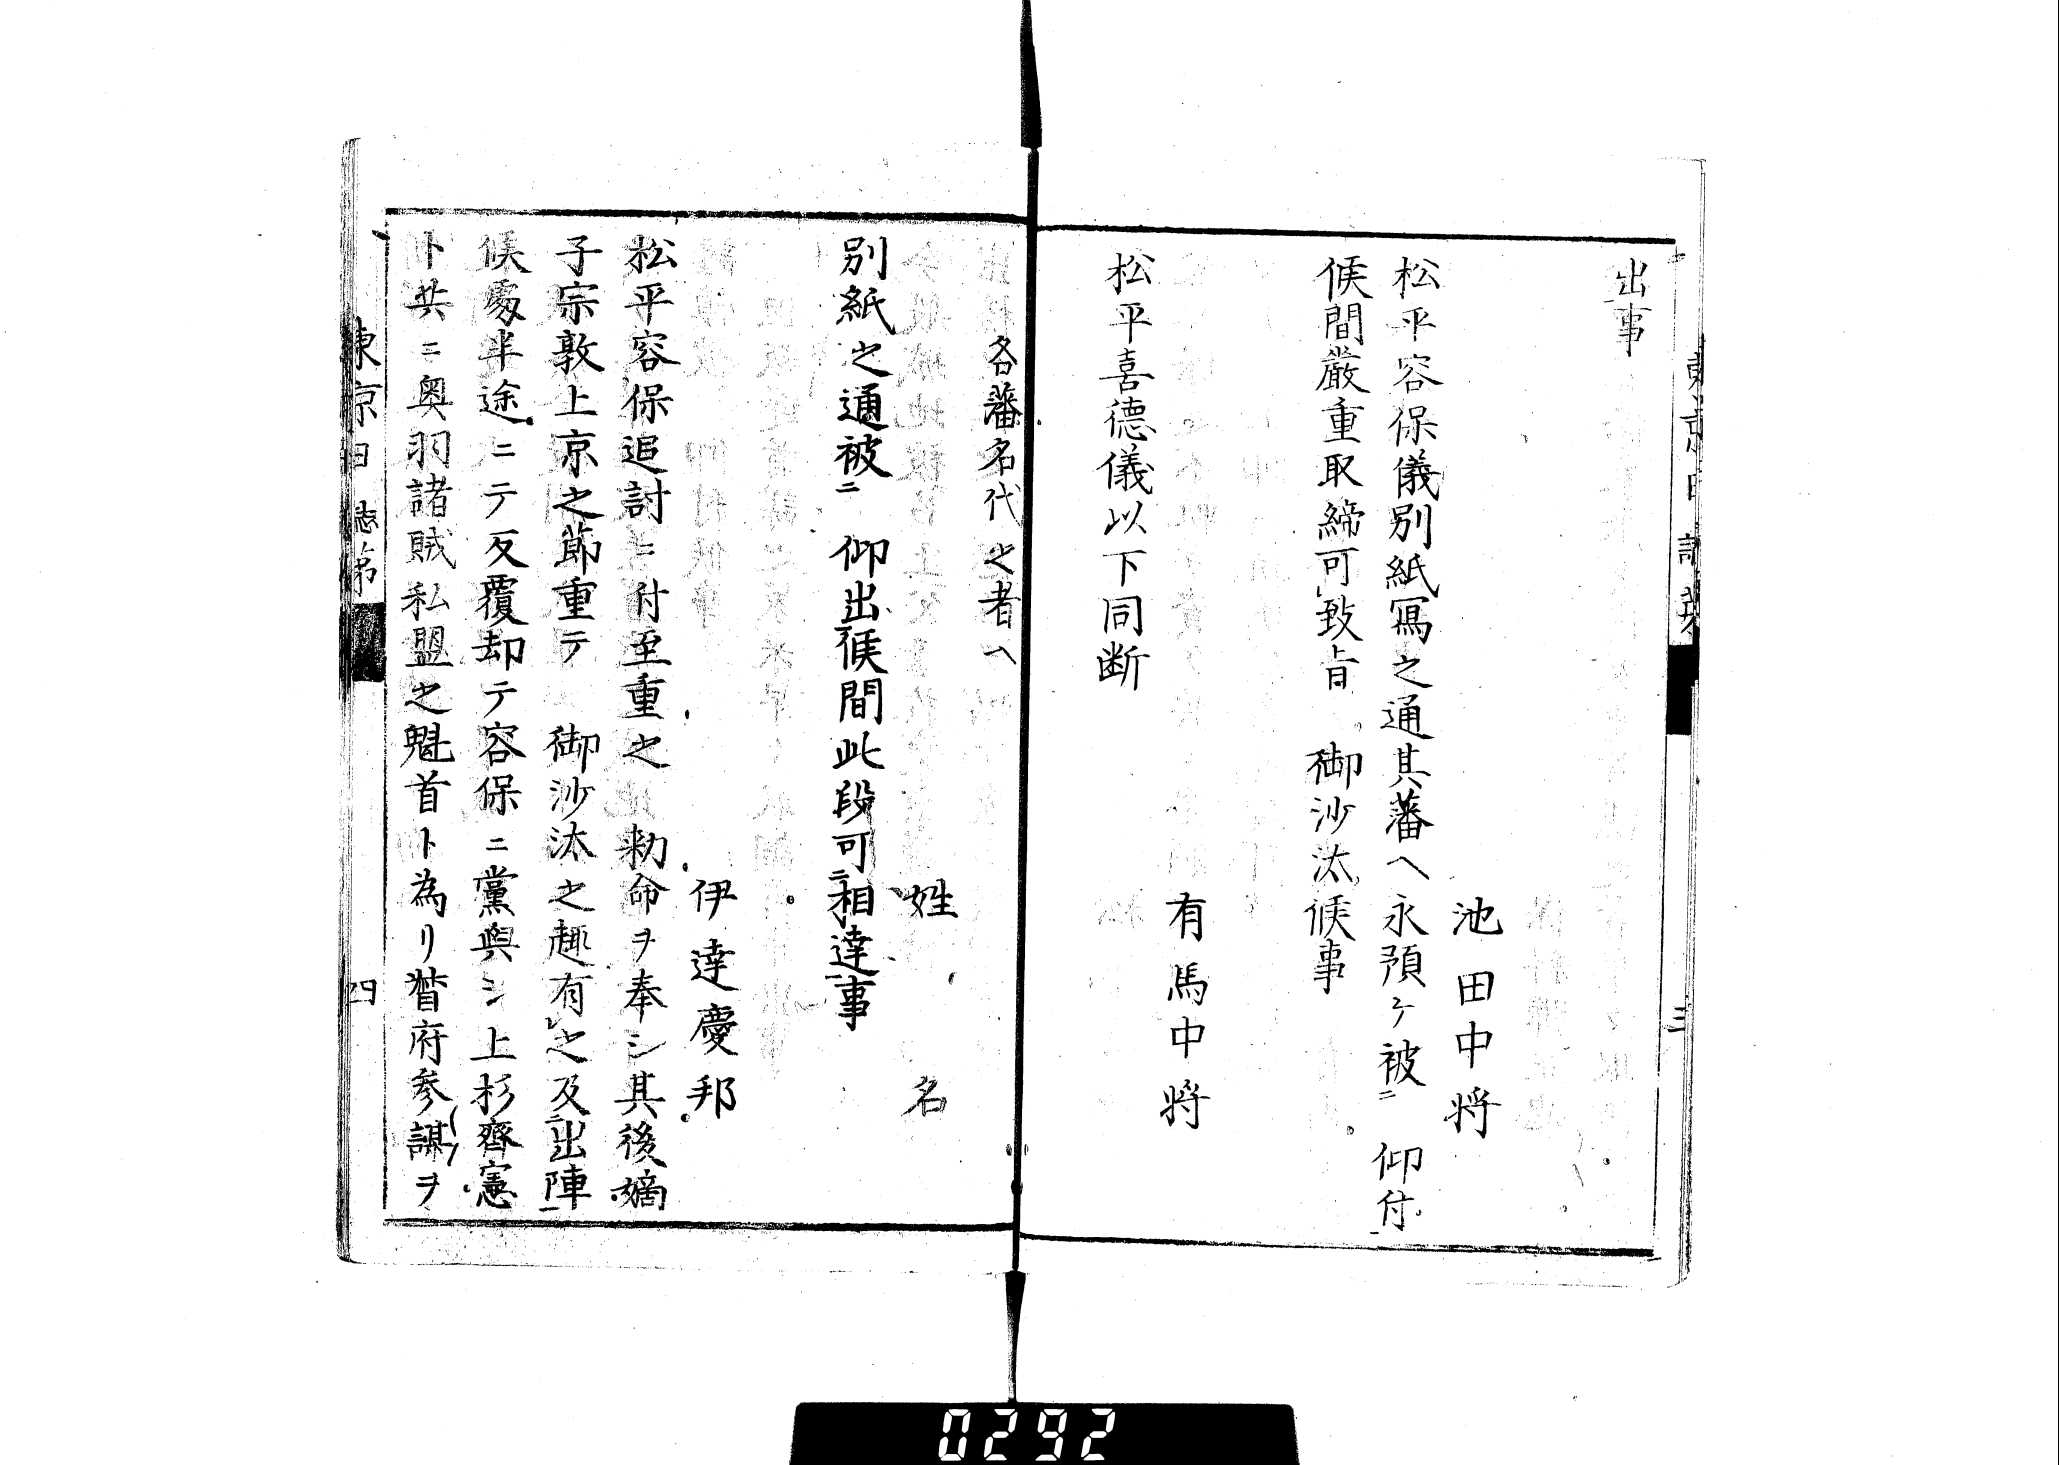 出事
池田中将
松平容保儀別紙寫之通其藩ヘ永預ケ被ニ 仰付
候間嚴重取締可致旨 御沙汰候事
有馬中将
松平喜德儀以下同断
三
各藩名代之者ヘ
姓 名
別紙之通被ニ 仰出候間此段可相達事
伊達慶邦
松平容保追討ニ付至重之 勅命ヲ奉シ其後嫡
子宗敦上京之節重テ 御沙汰之趣有之及出陣
候處半途ニテ反覆却テ容保ニ黨與シ上杉齊憲
ト共ニ奥羽諸賊私盟之魁首ト為リ督府参謀ヲ
東京日誌第
四
0292